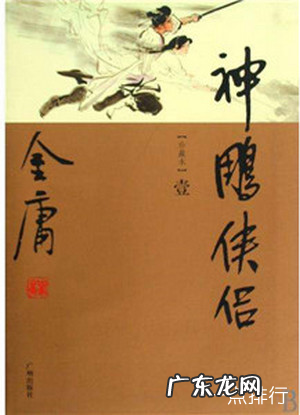 神鵰侠侣
【珍藏本】
壹
金庸
广州出版社
点排行
广东龙网